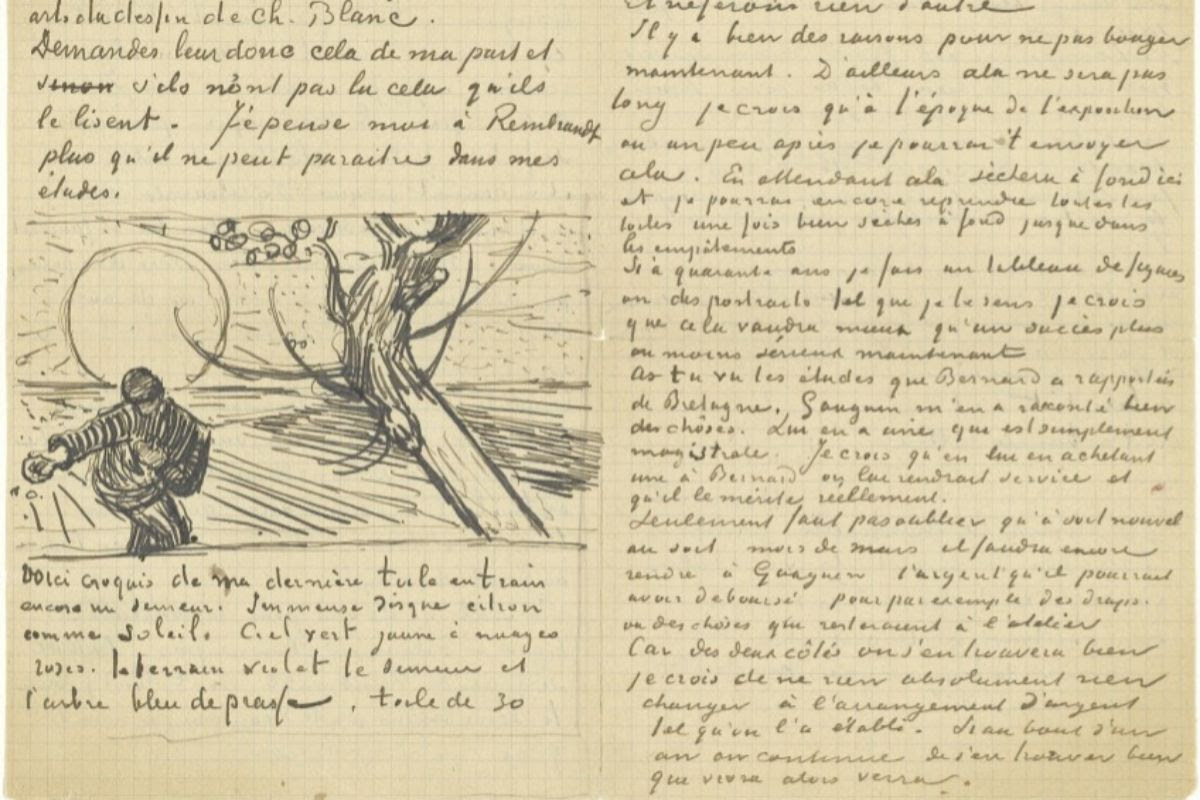 arts du dessin de Ch. Blanc.
Demandes leur donc cela de ma part et
sinon s'ils n'ont pas lu cela qu'ils
le lisent. Je pense moi à Rembrandt
plus qu'il ne peut paraitre dans mes
études.
Voici croquis de ma dernière toile en train
encore un semeur. Immense disque citron
comme soleil. Ciel vert jaune à nuages
roses. le terrain violet le semeur et
l'arbre bleu de prusse. toile de 30
et ne ferons rien d'autre
Il y a bien des raisons pour ne pas bouger
maintenant. D'ailleurs cela ne sera pas
long je crois qu'à l'époque de l'exposition
ou un peu après je pourrai t'envoyer
cela. En attendant cela sèchera à fond ici
et je pourrai encore reprendre toutes les
toiles une fois bien sèches à fond jusque dans
les empâtements
Si à quarante ans je fais un tableau de figures
ou des portraits tel que je le sens je crois
que cela vaudra mieux qu'un succès plus
ou moins sérieux maintenant
As tu vu les études que Bernard a rapportées
de Bretagne. Gauguin m'en a raconté bien
des choses. Lui en a une que est simplement
magistrale. Je crois qu'en lui en achetant
une à Bernard on lui rendrait service et
qu'il le mérite réellement.
Seulement faut pas oublier qu'à soit nouvel
an soit mois de mars il faudra encore
rendre à Gauguin l'argent qu'il pourrait
avoir deboursé pour par exemple des draps.
ou des choses que resteraient à l'atelier
Car des deux côtés on s'en trouvera bien
je crois de ne rien absolument rien
changer à l'arrangement d'argent
tel qu'on l'a établi. Si au bout d'un
an on continue de s'en trouver bien
que vivra alors verra.